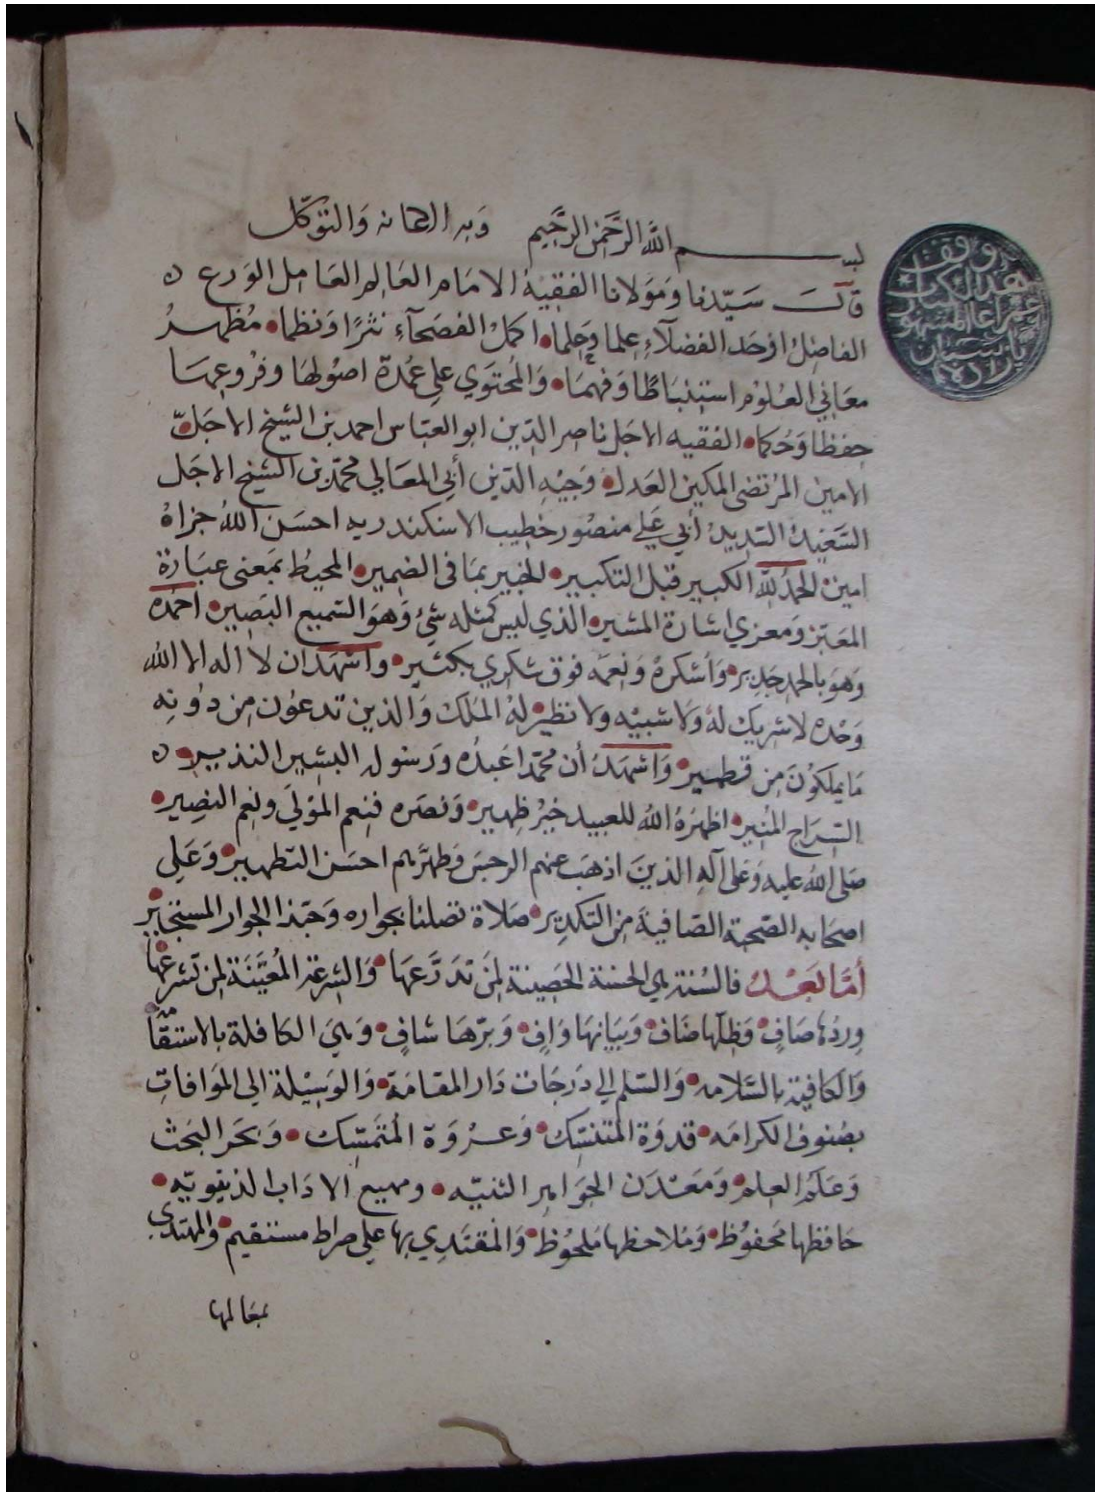 بسم الله الرحمن الرحيم وبه الاعانه والتوكل
قال سيدنا ومولانا الفقيه الامام العالم العامل الورع
الفاضل اوحد الفضلاء علما وحلما اكمل الفصحاء نثرا ونظما مظهر
معاني العلوم استنباطا وفهما والمحتوي على عمدة اصولها وفروعها
حفظا وحكما الفقيه الاجل ناصر الدين ابو العباس احمد بن الشيخ الاجل
الامين المرتضى المكين العدل وجيه الدين أبي المعالي محمد بن الشيخ الاجل
السعيد السديد أبي علي منصور خطيب الاسكندريه احسن الله جزاه
امين الحمد لله الكبير قبل التكبير الخبير بما في الضمير المحيط بمعنى عبارة
المعبر ومعزي اشارة المشير الذي ليس كمثله شيء وهو السميع البصير احمده
وهو بالحمد جدير واشكره ونعمه فوق شكري بكثير واشهد ان لا اله الا الله
وحده لا شريك له ولا شبيه ولا نظير له الملك والذين تدعون من دونه
ما يملكون من قطمير واشهد أن محمدا عبده ورسوله البشير النذير
السراج المنير اظهره الله للعبيد خير ظهير ونصره فنعم المولى ونعم النصير
صلى الله عليه وعلى آله الذين اذهب عنهم الرجس وطهرهم احسن التطهير وعلى
اصحابه الصحبة الصافية من التكدير صلاة تصلنا بجواره وحبذا الجوار المستجير
أما بعد فالسنة هي الجنة الحصينة لمن تدرعها والشرعة المعينة لمن تشرعها
وردها صاف وظلها ضاف وبيانها واف وبرها شاف وهي الكافلة بالاستقامه
والكافية بالسلامه والسلم الى درجات دار المقامة والوسيلة الى الموافات
بصنوف الكرامه قدوة المتنسك وعروة المتمسك وبحر البحث
وعلم العلم ومعدن الجواهر السنيه ومهيع الاداب
حافظها محفوظ وملاحظها ملحوظ والمقتدي بها على صراط مستقيم والمهتدي
بمعالمها
وقف
هذا الكتاب
المشهور